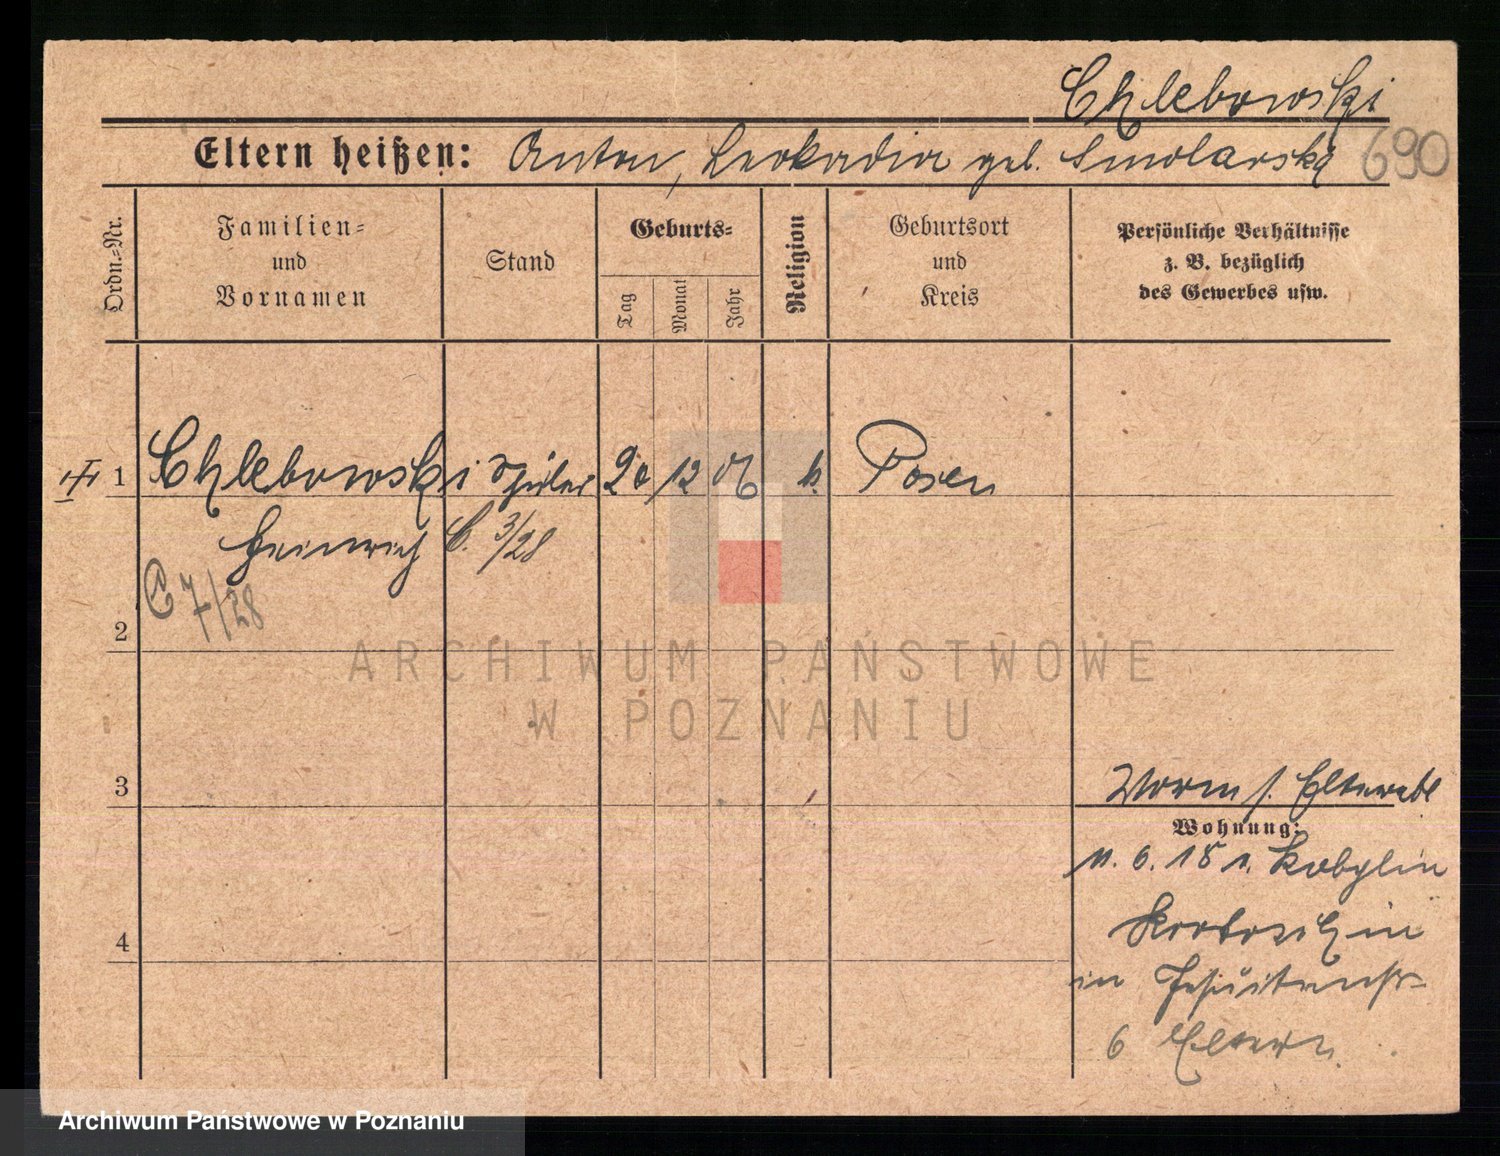 Chlebowski
690
Eltern heißen: Anton, Leokadia geb. Smolarska
Ordn.-Nr.
Familien-
und
Vornamen
Stand
Geburts-
Tag
Monat
Jahr
Religion
Geburtsort
und
Kreis
Persönliche Verhältnisse
z. B. bezüglich
des Gewerbes usw.
1 Chlebowski Schüler 20 12 06 k. Posen
Heinrich C. 3/28
C 7/28
2
ARCHIWUM PAŃSTWOWE
W POZNANIU
3
Worm s. Elternbl
Wohnung:
11. 6. 18 n. Kobylin
Krotoschin
in Jesuitenstr.
6 Eltern
4
Archiwum Państwowe w Poznaniu